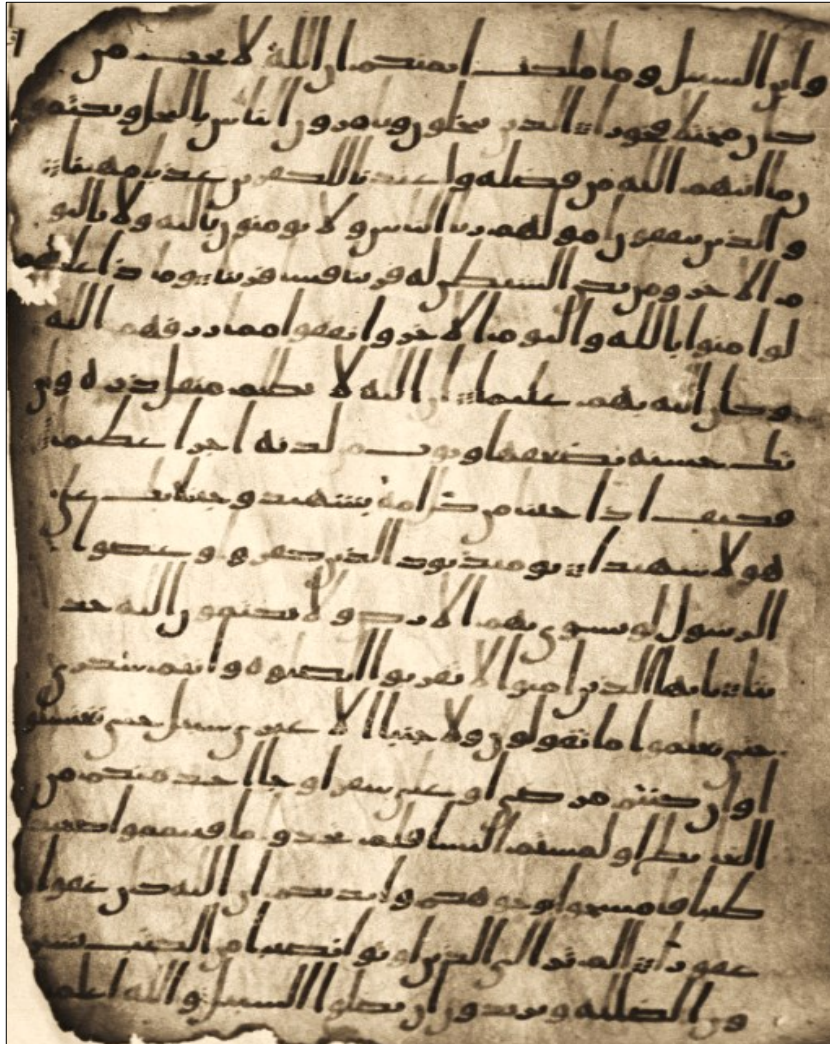 وابن السبيل وما ملكت ايمنكم ان الله لا يحب من
كان مختلا فخورا الذين يبخلون ويامرون الناس بالبخل ويكتمو
ن ما اتيهم الله من فضله واعتدنا للكفرين عذبا مهينا
والذين ينفقون امولهم ريا الناس ولا يومنون بالله ولا باليو
م الاخر ومن يكن الشيطن له قرينا فسا قرينا وما ذا عليهم
لو امنوا بالله واليوم الاخر وانفقوا مما رزقهم الله
وكان الله بهم عليما ان الله لا يظلم مثقل ذره وان
تك حسنه يضعفها ويوت من لدنه اجرا عظيما
فكيف اذا جينا من كل امه بشهيد وجينا بك على
هولا شهيدا يومئذ يود الذين كفروا وعصوا
الرسول لو تسوى بهم الارض ولا يكتمون الله حد
يثا يايها الذين امنوا لا تقربوا الصلوه وانتم سكرى
حتى تعلموا ما تقولون ولا جنبا الا عبري سبيل حتى تغتسلو
ا وان كنتم مرضى او على سفر او جا احد منكم من
الغيط او لمستم النسا فلم تجدوا ما فتيمموا صعيدا
طيبا فامسحوا بوجوهكم وايديكم ان الله كان عفوا
غفورا الم تر الى الذين اوتوا نصيبا من الكتب يشتر
ون الضلله ويريدون ان تضلوا السبيل والله اعلم